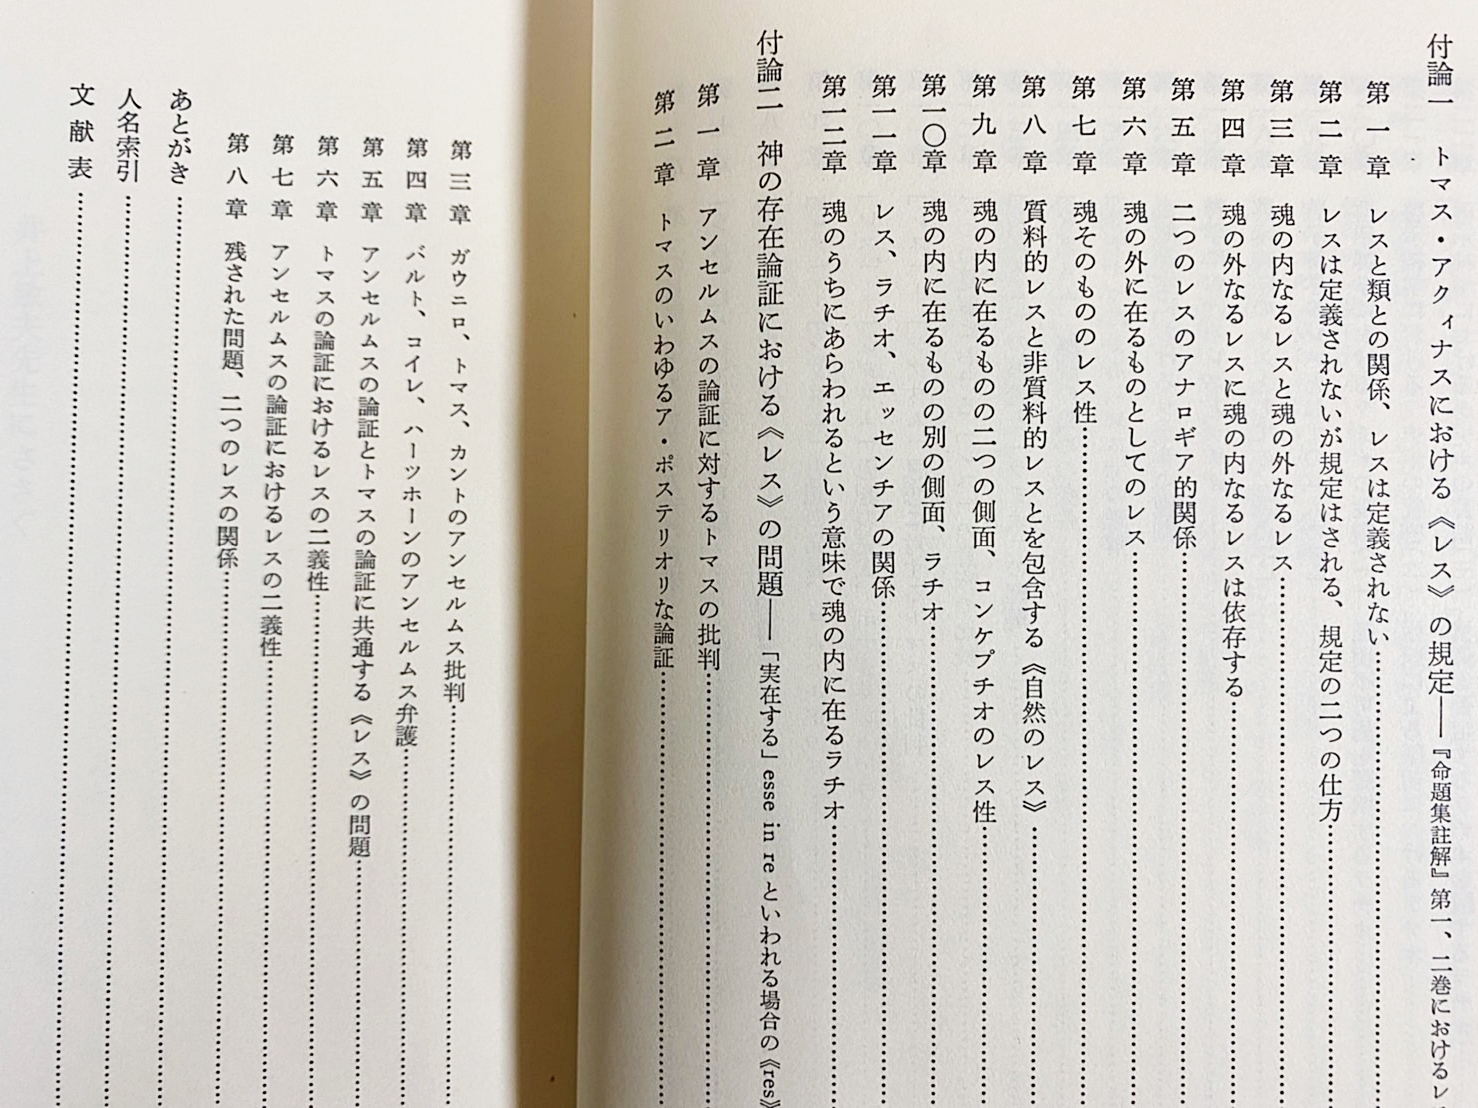 付論一　トマス・アクィナスにおける《レス》の規定――『命題集註解』第一、二巻におけるレ
第一章　レスと類との関係、レスは定義されない……………
第二章　レスは定義されないが規定はされる、規定の二つの仕方……………
第三章　魂の内なるレスと魂の外なるレス……………
第四章　魂の外なるレスに魂の内なるレスは依存する……………
第五章　二つのレスのアナロギア的関係……………
第六章　魂の外に在るものとしてのレス……………
第七章　魂そのもののレス性……………
第八章　質料的レスと非質料的レスとを包含する《自然のレス》……………
第九章　魂の内に在るものの二つの側面、コンケプチオのレス性……………
第一〇章　魂の内に在るものの別の側面、ラチオ……………
第一一章　レス、ラチオ、エッセンチアの関係……………
第一二章　魂のうちにあらわれるという意味で魂の内に在るラチオ……………
付論二　神の存在論証における《レス》の問題――「実在する」esse in re といわれる場合の《res》
第一章　アンセルムスの論証に対するトマスの批判……………
第二章　トマスのいわゆるア・ポステリオリな論証……………
第三章　ガウニロ、トマス、カントのアンセルムス批判……………
第四章　バルト、コイレ、ハーツホーンのアンセルムス弁護……………
第五章　アンセルムスの論証とトマスの論証に共通する《レス》の問題……………
第六章　トマスの論証におけるレスの二義性……………
第七章　アンセルムスの論証におけるレスの二義性……………
第八章　残された問題、二つのレスの関係……………
あとがき……………
人名索引……………
文献表……………